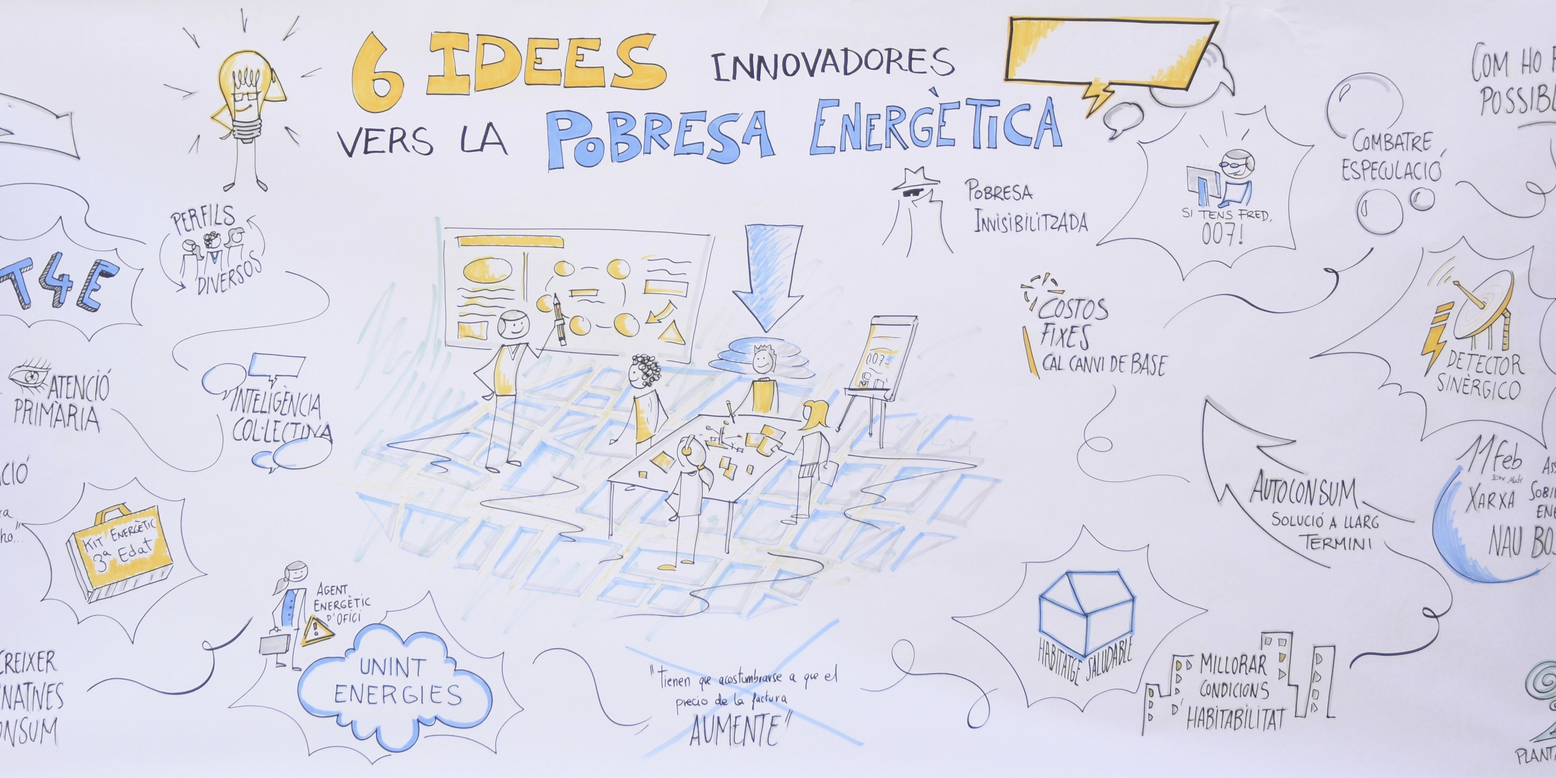 6 IDEES INNOVADORES
VERS LA POBRESA ENERGÈTICA
COM HO
POSSIBL
COMBATRE
ESPECULACIÓ
POBRESA
INVISIBILITZADA
SI TENS FRED,
007!
PERFILS
DIVERSOS
T4E
COSTOS
FIXES
CAL CANVI DE BASE
DETECTOR
SINÈRGICO
ATENCIÓ
PRIMÀRIA
INTELIGÈNCIA
COL·LECTIVA
007
11 Feb
XARXA
NAU BO
AUTOCONSUM
SOLUCIÓ A LLARG
TERMINI
CIÓ
KIT ENERGÈTIC
3ª Edat
AGENT
ENERGÈTIC
D'OFICI
UNINT
ENERGIES
CREIXER
NATIVES
ONSUM
"tienen que acostumbrarse a que el
precio de la factura
AUMENTE"
HABITATGE SALUDABLE
MILLORAR
CONDICIONS
HABITABILITAT
PLANT